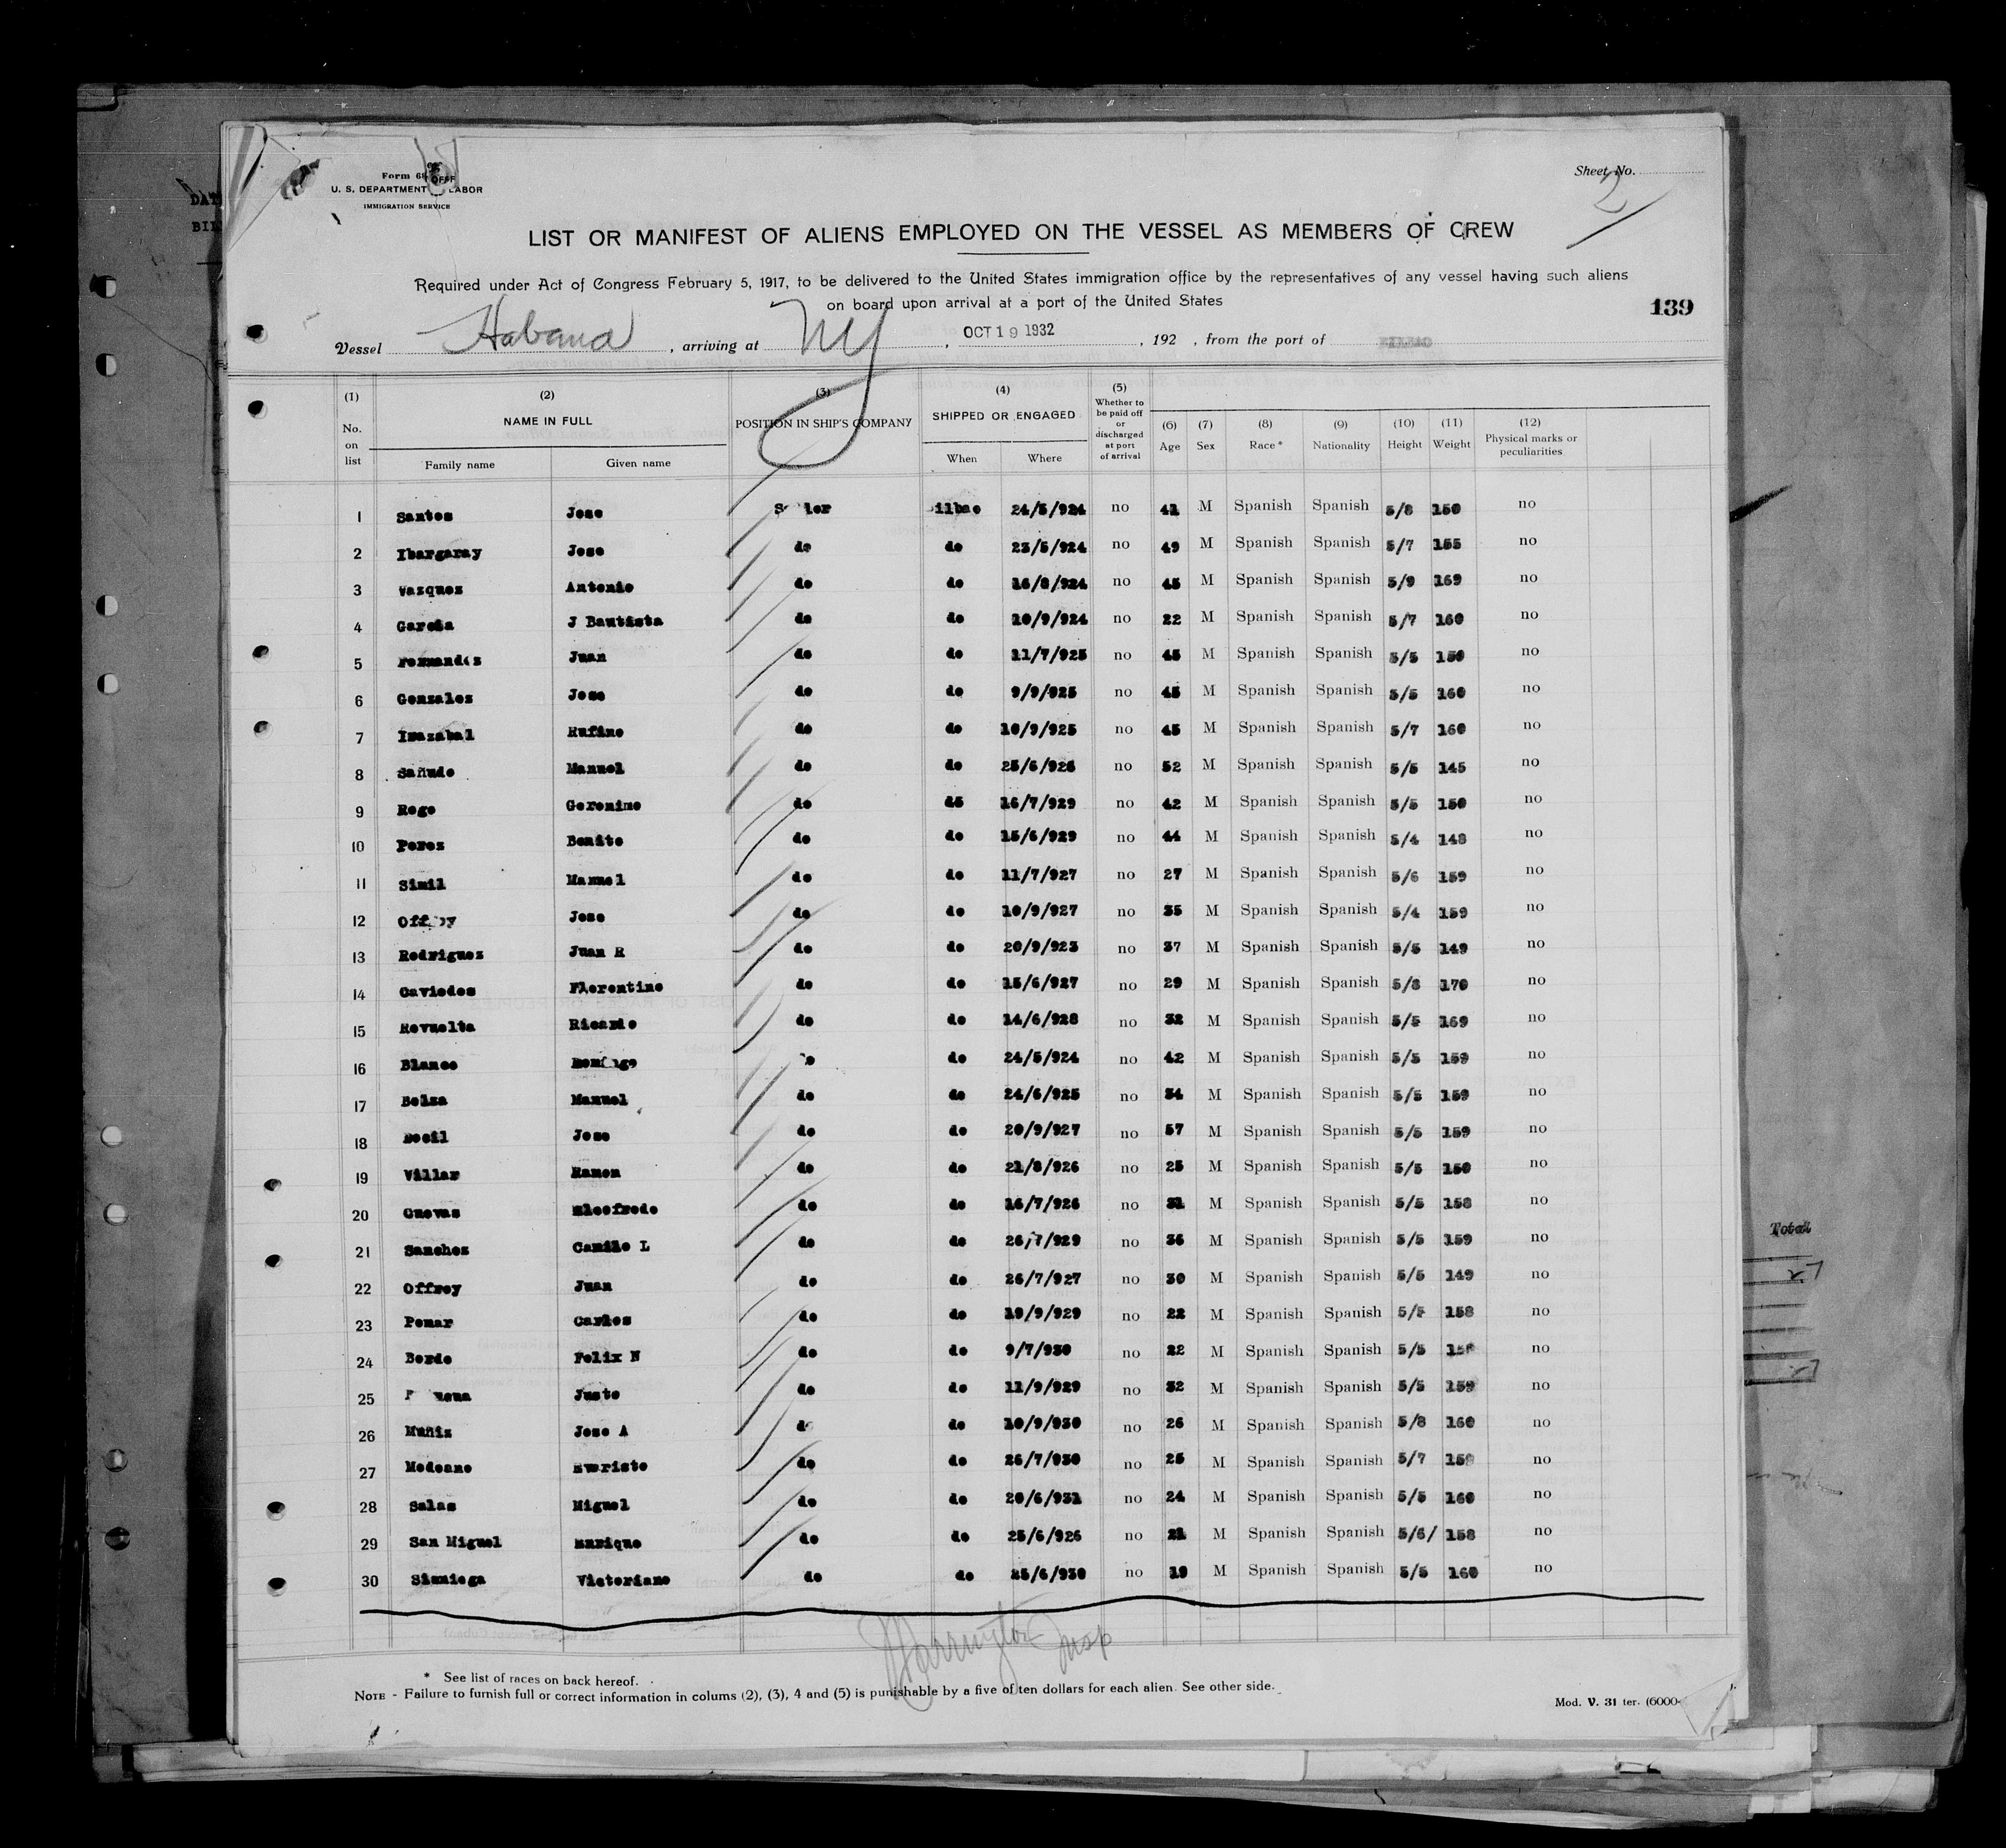 Form 68
U. S. DEPARTMENT LABOR
IMMIGRATION SERVICE
Sheet No. 2
LIST OR MANIFEST OF ALIENS EMPLOYED ON THE VESSEL AS MEMBERS OF CREW
Required under Act of Congress February 5, 1917, to be delivered to the United States immigration office by the representatives of any vessel having such aliens
on board upon arrival at a port of the United States
139
Vessel Habana, arriving at NY, OCT 19 1932, 192 , from the port of BILBAO
(1) No. on list (2) NAME IN FULL Family name Given name (3) POSITION IN SHIP'S COMPANY (4) SHIPPED OR ENGAGED When Where (5) Whether to be paid off or discharged at port of arrival (6) Age (7) Sex (8) Race * (9) Nationality (10) Height (11) Weight (12) Physical marks or peculiarities
1 Santos Jose 24/5/924 no 41 M Spanish Spanish 5/8 150 no
2 Ibargaray Jose do do 23/5/924 no 49 M Spanish Spanish 5/7 155 no
3 Vazquez Antonio do do 16/8/924 no 45 M Spanish Spanish 5/9 169 no
4 Garcia J Bautista do do 10/9/924 no 22 M Spanish Spanish 5/7 160 no
5 Fernandez Juan do do 11/7/925 no 45 M Spanish Spanish 5/5 150 no
6 Gonzalez Jose do do 9/9/925 no 45 M Spanish Spanish 5/5 160 no
7 Inazabal Rufino do do 10/9/925 no 45 M Spanish Spanish 5/7 160 no
8 Sañudo Manuel do do 25/6/926 no 52 M Spanish Spanish 5/5 145 no
9 Rego Geronimo do do 16/7/929 no 42 M Spanish Spanish 5/5 150 no
10 Perez Benito do do 15/6/929 no 44 M Spanish Spanish 5/4 148 no
11 Simil Manuel do do 11/7/927 no 27 M Spanish Spanish 5/6 159 no
12 Jose do do 10/9/927 no 35 M Spanish Spanish 5/4 159 no
13 Rodriguez Juan R do do 20/9/923 no 37 M Spanish Spanish 5/5 149 no
14 Caviedes Florentino do do 15/6/927 no 29 M Spanish Spanish 5/8 170 no
15 Revuelta Ricardo do do 14/6/928 no 32 M Spanish Spanish 5/5 169 no
16 Blanco Domingo do 24/5/924 no 42 M Spanish Spanish 5/5 159 no
17 Belza Manuel do do 24/6/925 no 34 M Spanish Spanish 5/5 159 no
18 Jose do do 20/9/927 no 57 M Spanish Spanish 5/5 159 no
19 Villar Ramon do do 21/8/926 no 25 M Spanish Spanish 5/5 150 no
20 Cuevas do do 16/7/926 no 31 M Spanish Spanish 5/5 158 no
21 Sanchez Camilo L do do 26/7/929 no 36 M Spanish Spanish 5/5 159 no
22 Offrey Juan do do 26/7/927 no 30 M Spanish Spanish 5/5 149 no
23 Pomar Carlos do do 10/9/929 no 22 M Spanish Spanish 5/5 158 no
24 Berdo Felix N do do 9/7/930 no 22 M Spanish Spanish 5/5 no
25 Justo do do 11/9/929 no 32 M Spanish Spanish 5/5 159 no
26 Muñiz Jose A do do 10/9/930 no 26 M Spanish Spanish 5/8 160 no
27 Medeano Evaristo do do 26/7/930 no 25 M Spanish Spanish 5/7 no
28 Salas Miguel do do 20/6/931 no 24 M Spanish Spanish 5/5 160 no
29 San Miguel Enrique do do 25/6/926 no 21 M Spanish Spanish 5/6/ 158 no
30 Simniega Victoriano do do 25/6/930 no 19 M Spanish Spanish 5/5 160 no
Harrington Insp
* See list of races on back hereof.
NOTE - Failure to furnish full or correct information in colums (2), (3), 4 and (5) is punishable by a five of ten dollars for each alien. See other side.
Mod. V. 31 ter. (6000-
Total